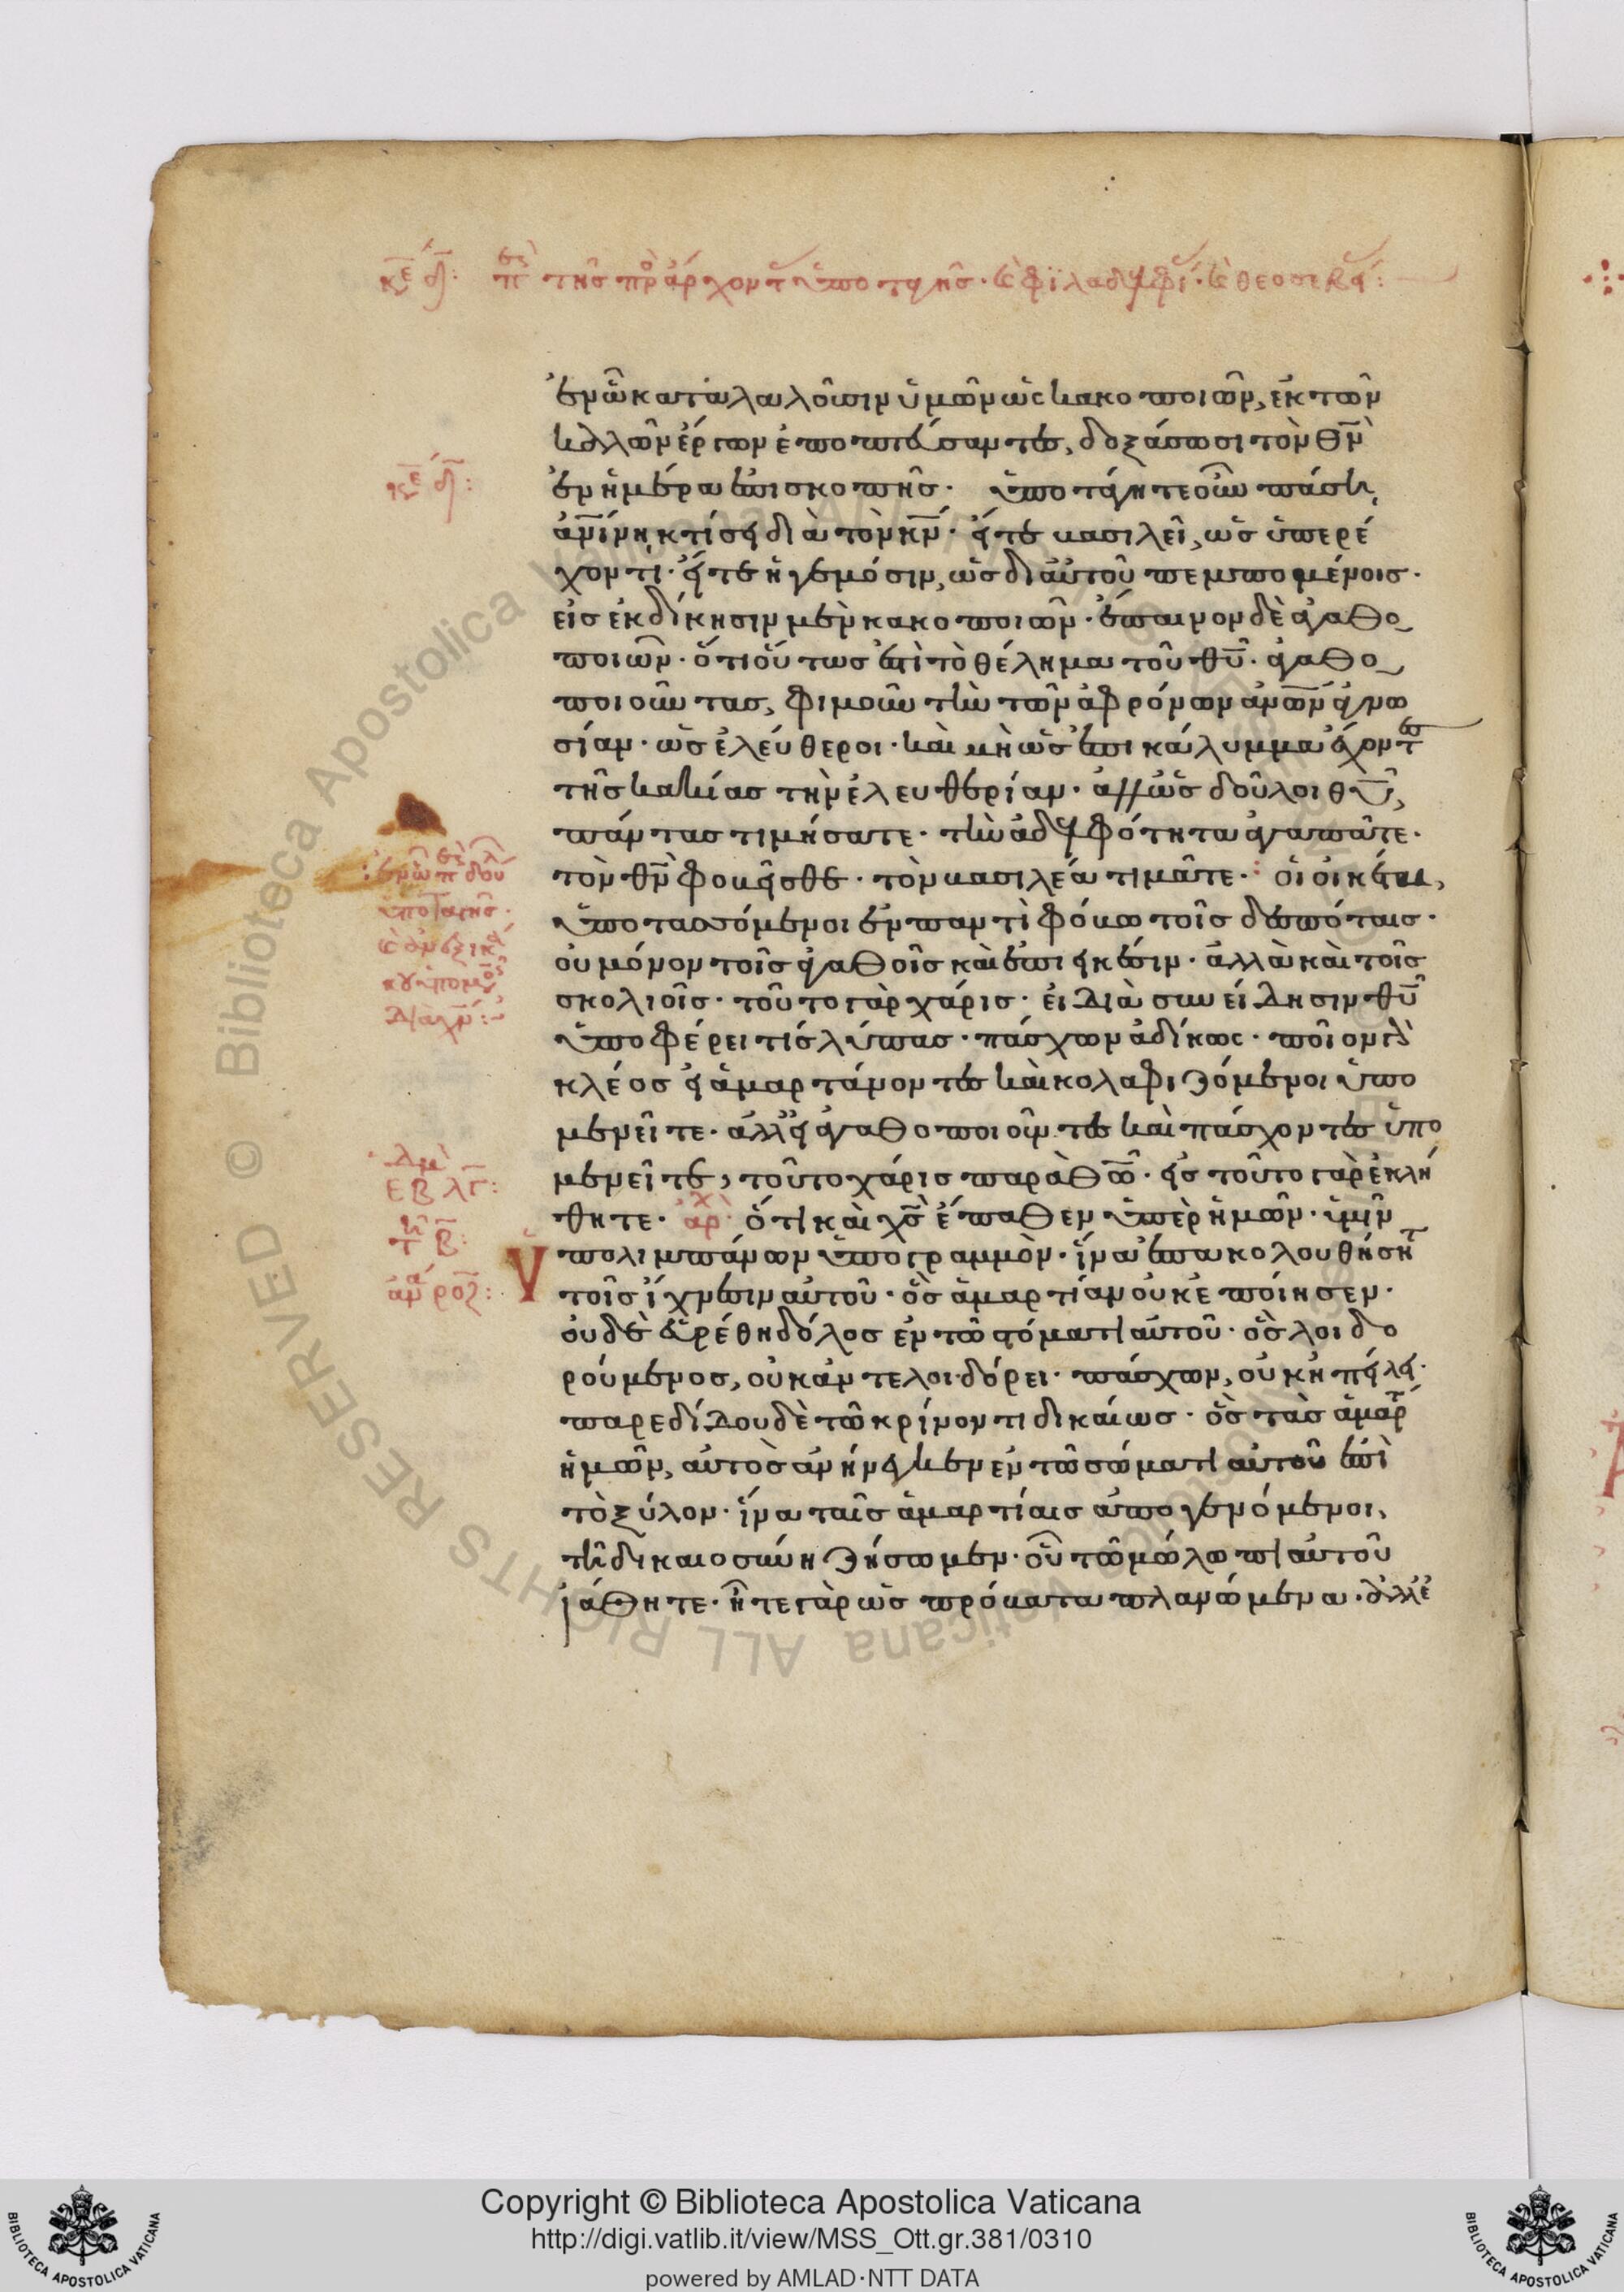 κε δ: περὶ τῆς πρὸς ἄρχοντας ὑποταγῆς· καὶ φϊλαδελφί· καὶ θεοσεβεί:
ἐν ὧ καταλαλοῦσιν ὑμῶν ὡς κακοποιῶν, ἐκ τῶν
καλῶν ἔργων ἐποπτεύσαντες, δοξάσωσι τὸν θν
κε δ:
ἐν ἡμέρα ἐπισκοπῆς· ὑποτάγητε οὖν πάση,
ἀνίνη κτίσει διὰ τὸν κν· εἴτε βασιλεῖ, ὡς ὑπερέ
χοντι· εἴτε ἡγεμόσιν, ὡς δι αὐτοῦ πεμπομένοις·
εἰς ἐκδίκησιν μὲν κακοποιῶν· ἔπαινον δὲ ἀγαθο
ποιῶν· ὅτι οὕτως ἐστὶ τὸ θέλημα τοῦ θυ· ἀγαθο
ποιοῦντας, φιμοῦν τὴν τῶν ἀφρόνων ἀνων ἀγνω
σίαν· ὡς ἐλεύθεροι· καὶ μὴ ὡς ἐπικάλυμμα ἔχοντες
τῆς κακίας τὴν ἐλευθερίαν· ἀλλ ὡς δοῦλοι θυ,
πάντας τιμήσατε· τὴν ἀδελφότητα ἀγαπᾶτε·
τὸν θν φοβεῖσθε· τὸν βασιλέα τιμᾶτε· οἱ οἰκέται,
ἐν ὧ περὶ δούλ
ὑποταγῆς·
καὶ ἀνεξικα
κου ὑπομο
διὰ χν:
ὑποτασσόμενοι ἐν παντὶ φόβω τοῖς δεσπόταις·
οὐ μόνον τοῖς ἀγαθοῖς καὶ ἐπιεικέσιν· ἀλλὰ καὶ τοῖς
σκολιοῖς· τοῦτο γὰρ χάρις· εἰ διὰ συνείδησιν θυ
ὑποφέρει τίς λύπας· πάσχων ἀδίκως· ποῖον γὰρ
κλέος εἰ ἁμαρτάνοντες καὶ κολαφιζόμενοι ὑπο
μενεῖτε· ἀλλ εἰ ἀγαθοποιοῦντες καὶ πάσχοντες ὑπο
μενεῖτε, τοῦτο χάρις παρὰ θω· εἰς τοῦτο γὰρ ἐκλή
ΕΒ λΓ:
θητε· ἀρχ ὅτι καὶ χς ἔπαθεν ὑπὲρ ἡμῶν· ὑμῖν
τη β:
ὑπολιμπάνων ὑπογραμμὸν· ἵνα ἐπακολουθήσητ
τοῖς ἴχνεσιν αὐτοῦ· ὃς ἁμαρτίαν οὐκ ἐποίησεν·
οὐδὲ εὑρέθη δόλος ἐν τῶ στόματι αὐτοῦ· ὃς λοιδο
ρούμενος, οὐκ ἀντελοιδόρει· πάσχων, οὐκ ἠπείλει·
παρεδίδου δὲ τῶ κρίνοντι δικαίως· ὃς τὰς ἁμαρτ
ἡμῶν, αὐτὸς ἀνήνεγκεν ἐν τῶ σώματι αὐτοῦ ἐπὶ
τὸ ξύλον· ἵνα ταῖς ἁμαρτίαις ἀπογενόμενοι,
τῆ δικαιοσύνη ζήσωμεν· οὗ τῶ μώλωπι αὐτοῦ
ἰάθητε· ἦτε γὰρ ὡς πρόβατα πλανώμενα· ἀλλ ἐ
Copyright © Biblioteca Apostolica Vaticana
http://digi.vatlib.it/view/MSS_Ott.gr.381/0310
powered by AMLAD·NTT DATA